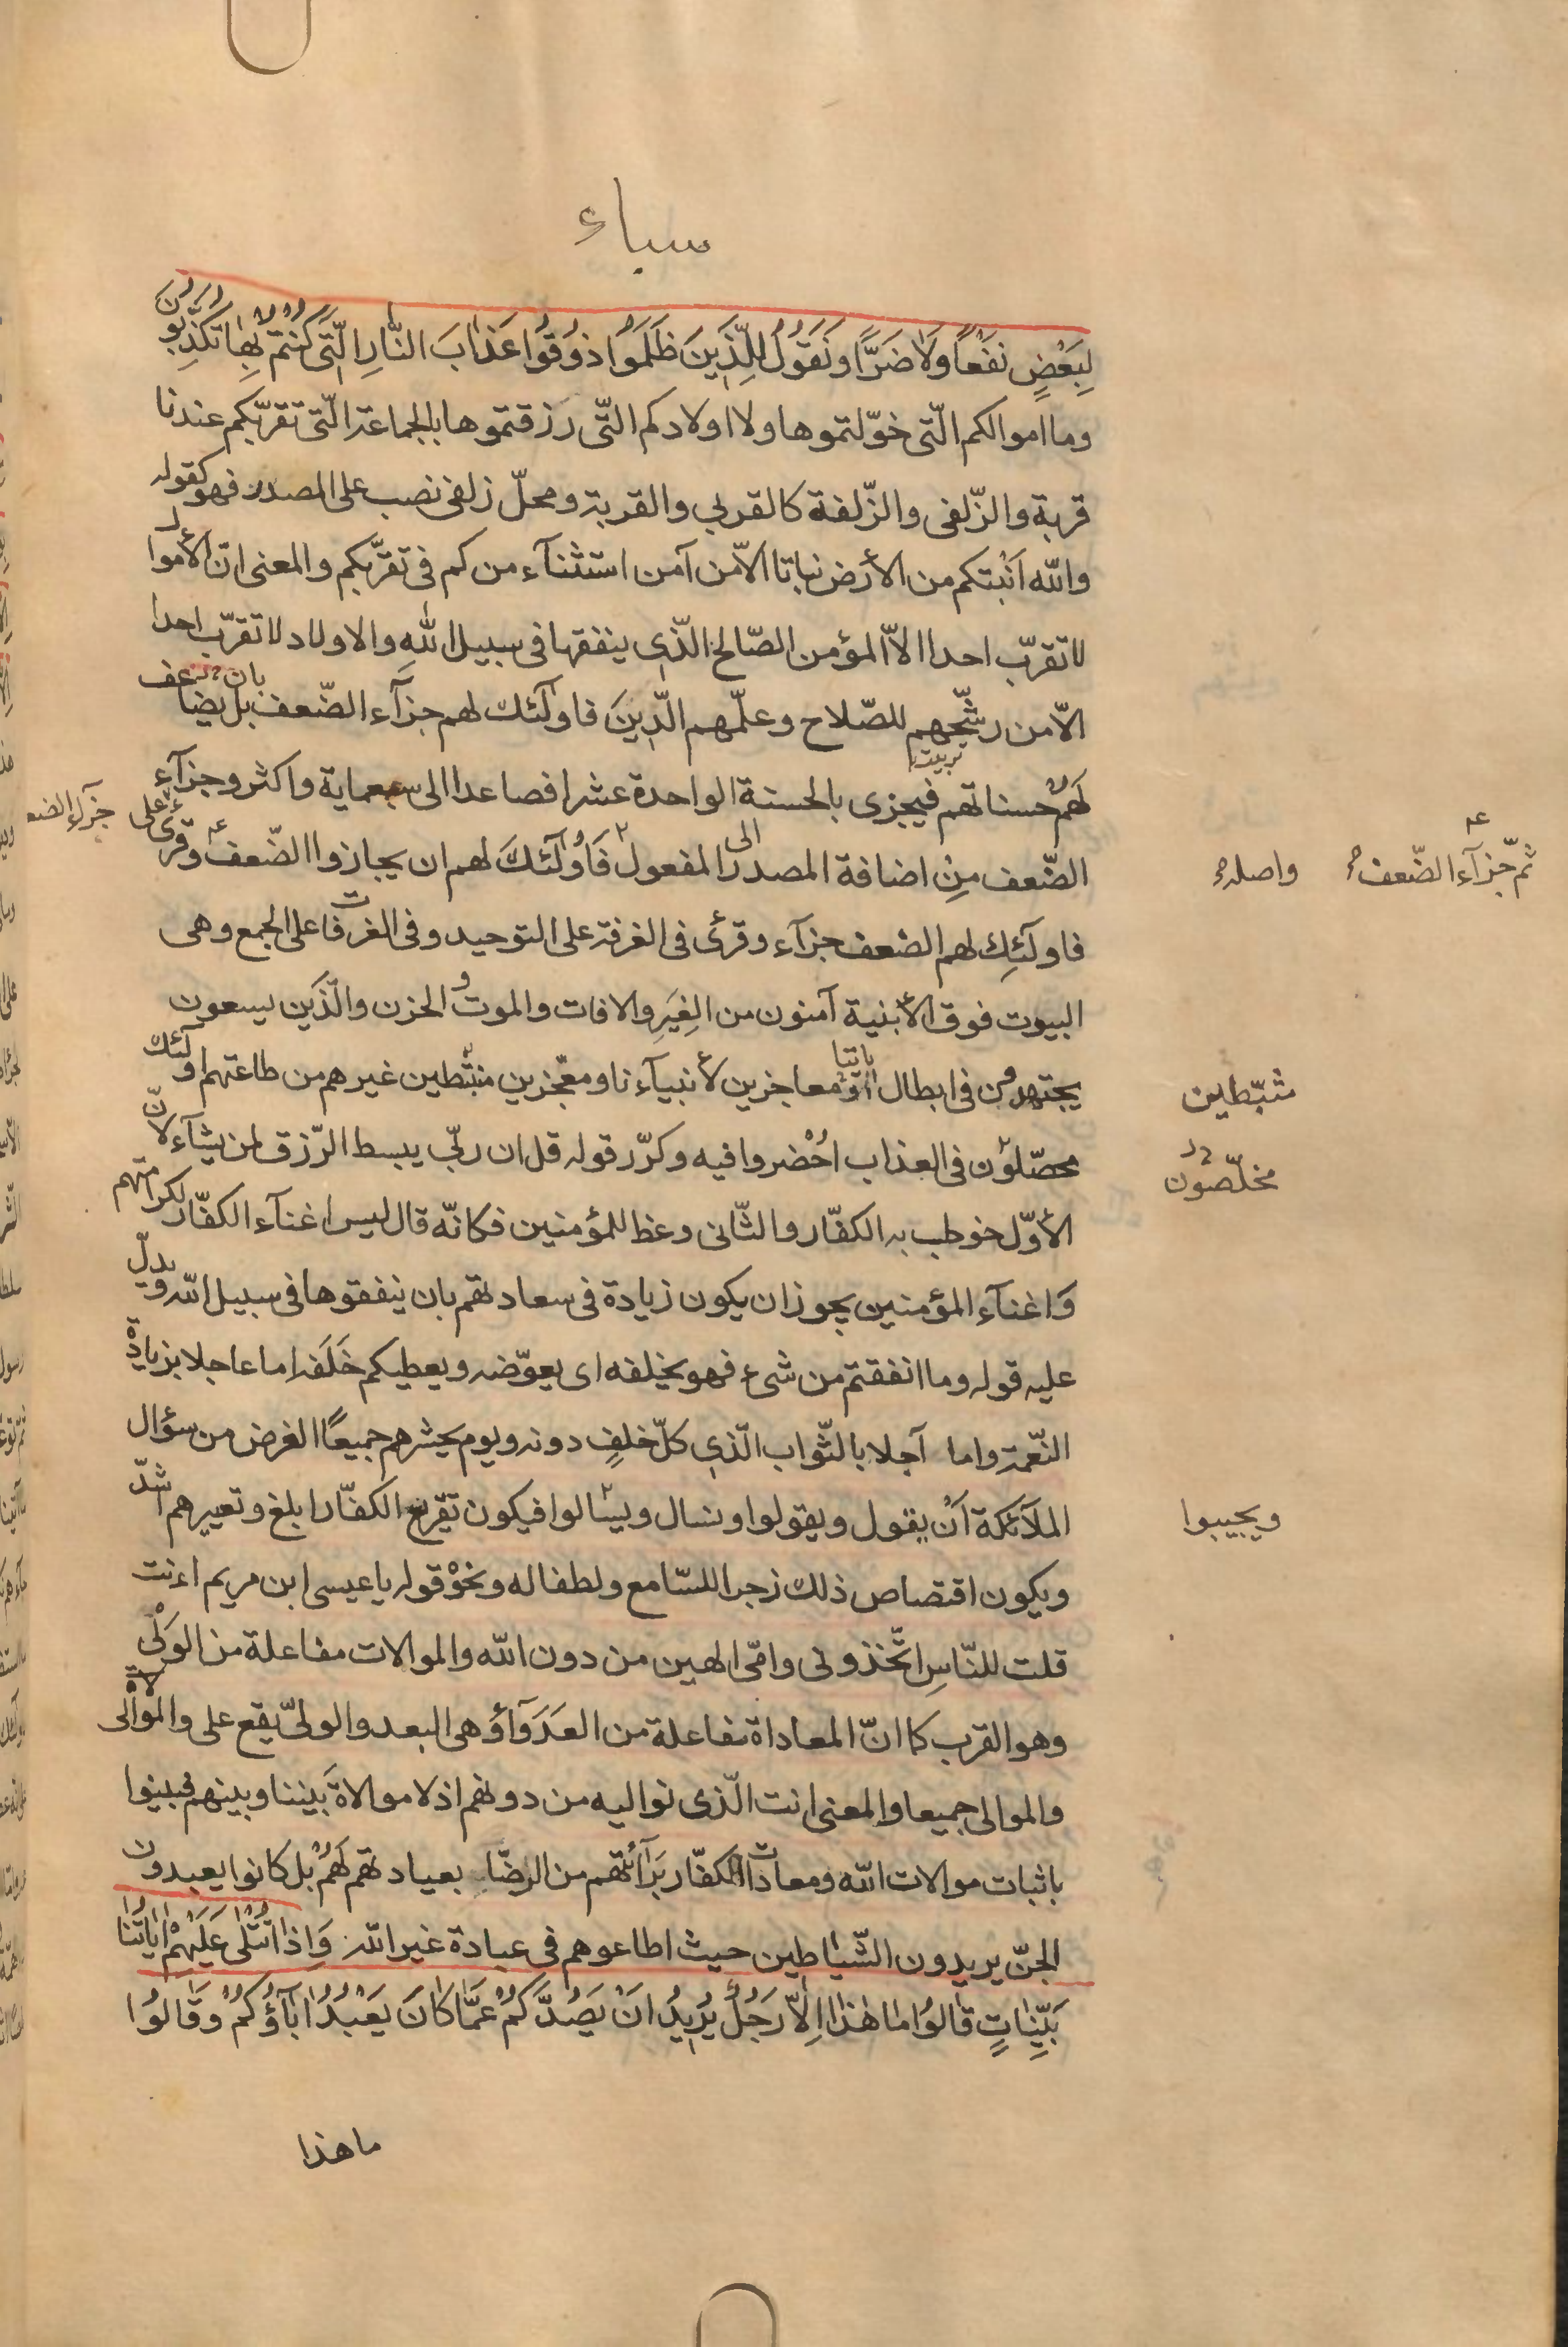 سباء
لِبَعْضٍ نَفْعًا وَلَا ضَرًّا وَنَقُولُ لِلَّذِينَ ظَلَمُوا ذُوقُوا عَذَابَ النَّارِ الَّتِي كُنْتُمْ بِهَا تُكَذِّبُونَ
وما اموالكم الّتى خوّلتموها ولا اولادكم التّى رزقتموها بالجماعة الّتى تقرّبكم عندنا
قربة والزّلفى والزّلفة كالقربى والقربة ومحلّ زلفى نصب على المصدر فهو كقوله
والله اَنْبتكم من الأرض نباتا الاّ من آمن استثنآء من كم فى تقرّبكم والمعنى انّ الأموال
لا تقرّب احدا الاّ المؤمن الصّالح الّذى ينفقها فى سبيل اللهِ والاولاد لا تقرّب احدا
الاّ من رشّحهم للصّلاح وعلّمهم الدِّينَ فاولَئك لهم جزآء الضّعف بان يضاعف
تربيت
لَهُمْ حسناتهم فيجزى بالحسنة الواحدة عشرا فصاعدا الى سبعماية واكثر وجزآء
الضّعف مِن اضافة المصدر الى المفعول فَأُولَئكَ لهم ان يجازوا الضّعف وقرئ على
جزآء الضعف
ثم جزآء الضّعف
واصله
فاولَئِك لهم الضعف جزآء وقرئ فى الغرفة على التوحيد وفى الغرفات على الجمع وهى
البيوت فوق الأبنية آمنون من الغِيَرِ والافات والموت والحزن والّذَين يسعون
يجتهدون فى ابطال آياتنا ومعاجزين لأنبيآءنا ومعجّزين مثبّطين غيرهم من طاعتهم اولَئك
مثبّطين
محصّلون فى العذاب اُحْضروا فيه وكرّر قوله قل ان ربّى يبسط الرّزق لمن يشآء لانّ
مخلّصون
الأوّل خوطب به الكفّار والثّانى وعظ للمؤمنين فكانّه قال ليس اغنآء الكفّار لكرامتهم
وَاغنآء المؤمنين يجوز ان يكون زيادة فى سعادتهم بان ينفقوها فى سبيل الله ويدلّ
عليه قوله وما انفقتم من شىء فهو يخلفه اى يعوّضه ويعطيكم خَلَفه اما عاجلا بزيادة
النّعمة واما آجلا بالثّواب الّذى كلّ خلفٍ دونه ويوم يحشرهم جميعًا الغرض من سؤال
الملآئكة اَنْ يقول ويقولوا وسال ويسالوا فيكون تقريع الكفّار ابلغ وتعييرهم اشدّ
ويجيبوا
ويكون اقتصاص ذلك زجرا للسّامع ولطفا له ونحوْ قوله يا عيسى ابن مريم اءنت
قلت للنّاسِ اتّخذونى وامّى الهين من دون الله والموالات مفاعلة من الوَلْى
وهو القرب كما انّ المعاداة مفاعلة من العَدَوَآؤ هى البعد والولىّ يقع على والموالى
والموالى جميعا والمعنى انت الّذى نواليه من دونهم اذ لا موالاة بَيننا وبينهم فبينوا
باثبات موالات الله ومعادات الكفّار بَرآئتهم من الرضّا بعبادتهم لَهُمْ بل كانوا يعبدون
الجنّ يريدون الشّياطين حيث اطاعوهم فى عبادة غير الله وَاِذَا تُتْلَى عَلَيْهِمْ اٰيَاتُنَا
بَيِّنَاتٍ قَالُوا مَا هٰذَا اِلاَّ رَجُلٌ يُرِيدُ اَنْ يَصُدَّكُمْ عَمَّا كَانَ يَعْبُدُ اٰبَآؤُكُمْ وَقَالُوا
ما هذا